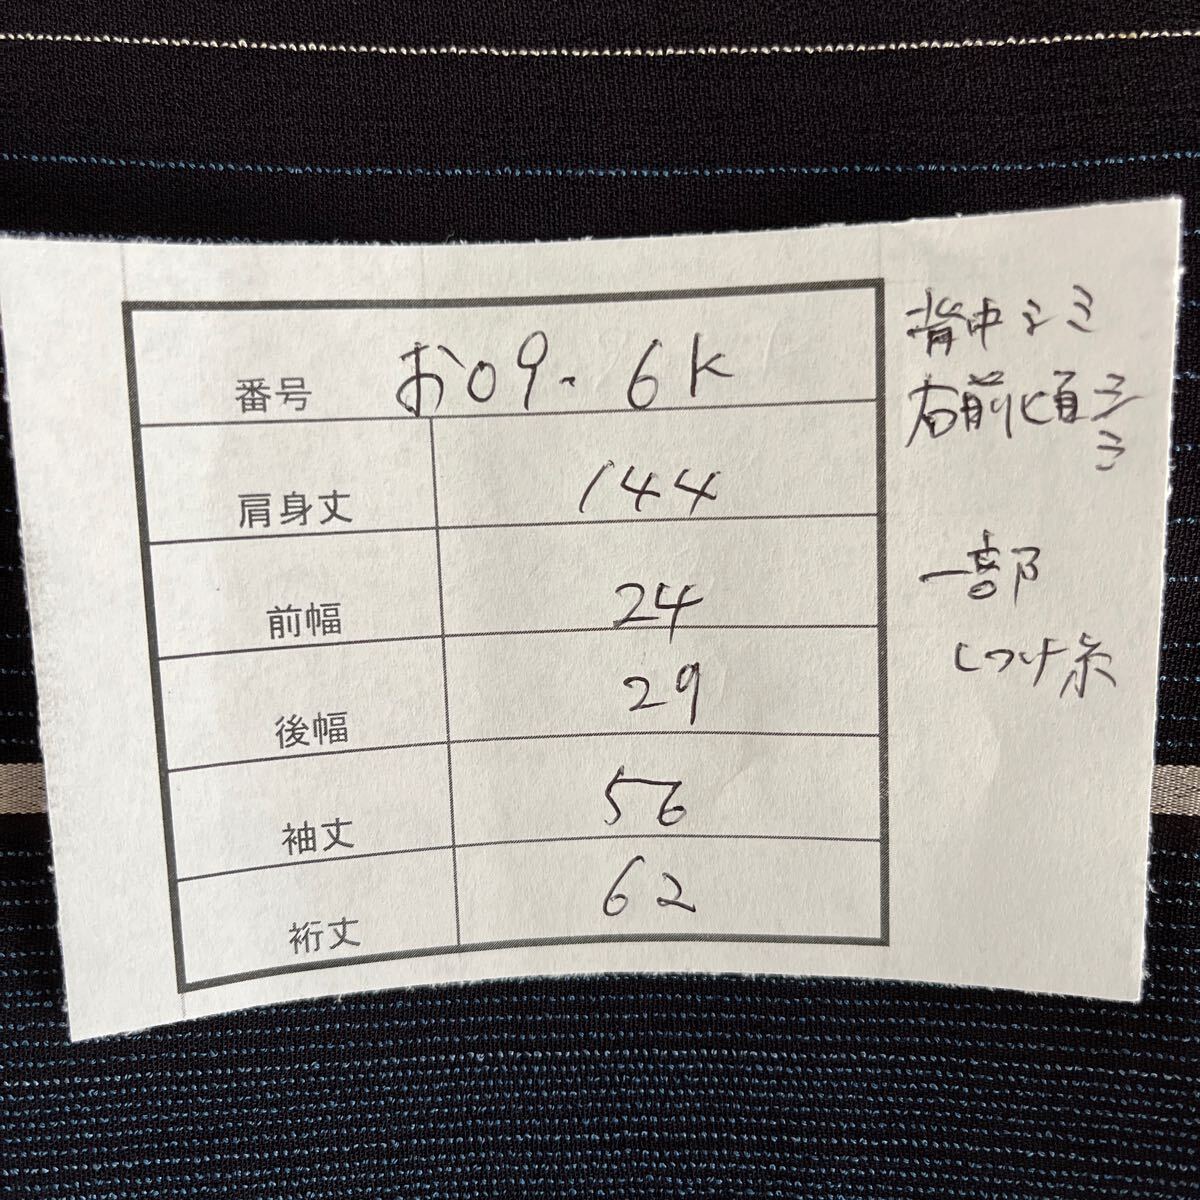 番号 お09-6K
肩身丈 144
前幅 24
後幅 29
袖丈 56
裄丈 62
背中シミ
右前比頁シミ
一部
しつけ糸